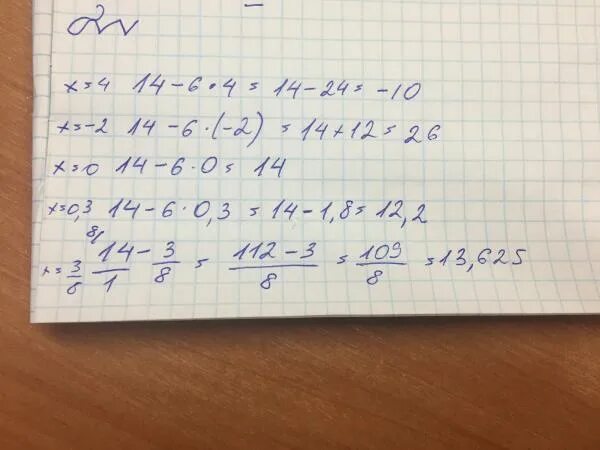 x=4 14-6·4= 14-24= -10
x=-2 14-6·(-2) = 14+12= 26
x=0 14-6·0= 14
x=0,3 14-6·0,3 = 14-1,8= 12,2
x=3/8 14/1 - 3/8 = (112-3)/8 = 109/8 =13,625